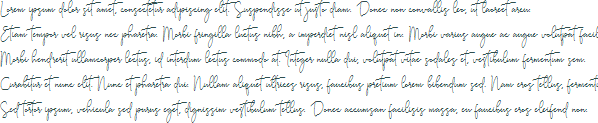 Lorem ipsum dolor sit amet, consectetur adipiscing elit. Suspendisse ut justo diam. Donec non convallis leo, ut laoreet arcu.
Etiam tempor vel risus nec pharetra. Morbi fringilla luctus nibh, a imperdiet nisl aliquet in. Morbi varius augue ac augue volutpat facil
Morbi hendrerit ullamcorper lectus, id interdum lectus commodo at. Integer nulla dui, volutpat vitae sodales et, vestibulum fermentum sem.
Curabitur et nunc elit. Nunc et pharetra dui. Nullam aliquet ultrices risus, faucibus pretium lorem bibendum sed. Nam eros tellus, ferment
Sed tortor ipsum, vehicula sed purus eget, dignissim vestibulum tellus. Donec accumsan facilisis massa, eu faucibus eros eleifend non.